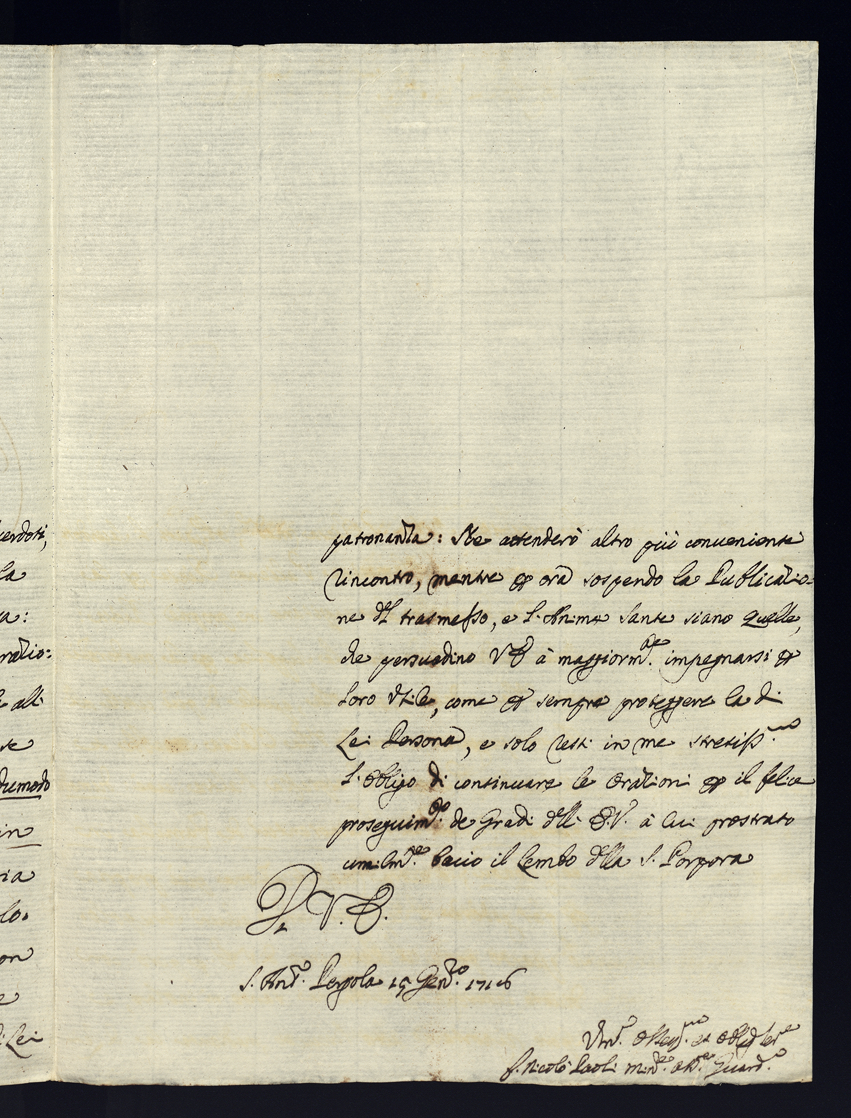 cerdoti,
la
va:
ratio:
e alli
se
dumodo
in
ria
lo.
on
e
di Lei
patronanza: Ne attenderò altro più conveniente
rincontro, mentre p ora sospendo la Publicatio-
ne del trasmesso, e l'Anime Sante siano quelle,
che persuadino V.E. à maggiorm.te impegnarsi p
loro utile, come p sempre proteggere la di
Lei Persona, e solo resti in me stretiss.mo
l'obligo di continuare le orationi p il felice
proseguim.to de Gradi dell' E.V. à cui prostrato
umilm.te bacio il Lembo della S. Porpora
Di V.E.
S. Ant.o Pergola 15 Gen.o 1716
Um. et Oblig. Ser.e
f. Nicolò Paoli Min. Guard.o